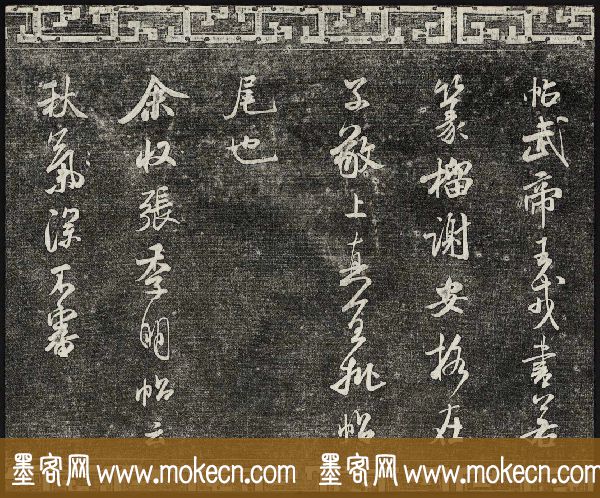 帖武帝王戎書若
篆籀謝安格在
子敬上真宜批帖
尾也
余收張季明帖云
秋氣深不審
墨客网 www.mokecn.com 墨客网 www.mokecn.com